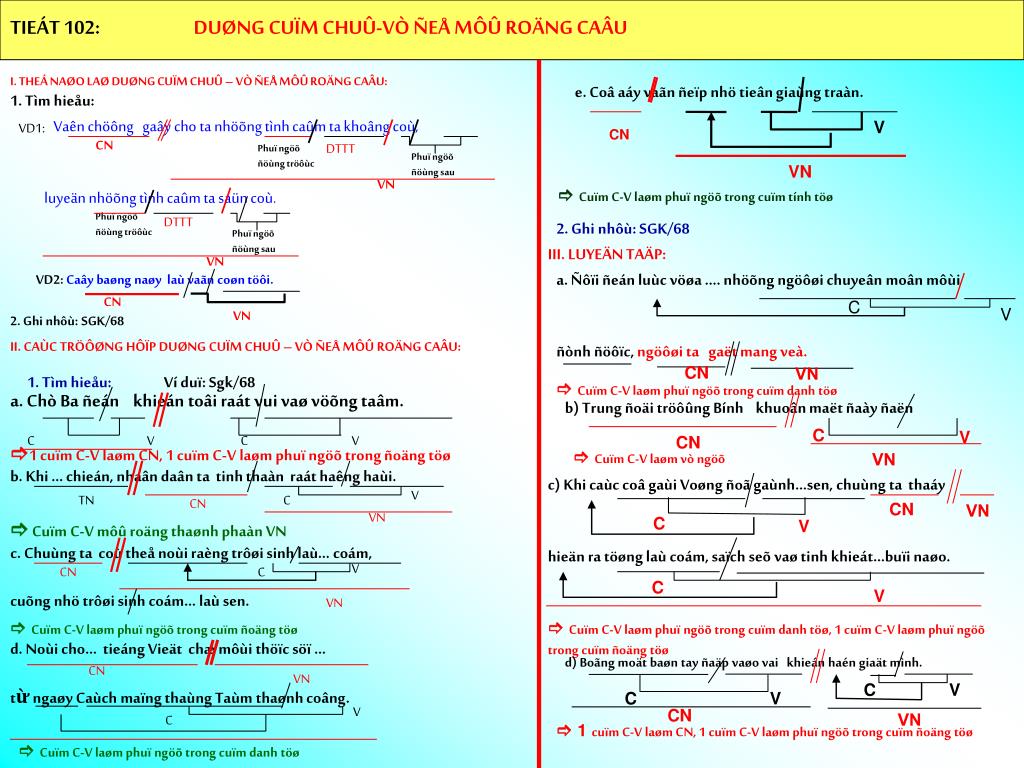 TIEÁT 102: DUØNG CUÏM CHUÛ-VÒ ÑEÅ MÔÛ ROÄNG CAÂU
I. THEÁ NAØO LAØ DUØNG CUÏM CHUÛ – VÒ ÑEÅ MÔÛ ROÄNG CAÂU:
1. Tìm hieåu:
VD1: Vaên chöông gaây cho ta nhöõng tình caûm ta khoâng coù,
CN
Phuï ngöõ
ñöùng tröôùc
DTTT
Phuï ngöõ
ñöùng sau
VN
luyeän nhöõng tình caûm ta saün coù.
Phuï ngöõ
ñöùng tröôùc
DTTT
Phuï ngöõ
ñöùng sau
VN
VD2: Caây baøng naøy laù vaãn coøn töôi.
CN
VN
2. Ghi nhôù: SGK/68
II. CAÙC TRÖÔØNG HÔÏP DUØNG CUÏM CHUÛ – VÒ ÑEÅ MÔÛ ROÄNG CAÂU:
1. Tìm hieåu: Ví duï: Sgk/68
a. Chò Ba ñeán khieán toâi raát vui vaø vöõng taâm.
C V C V
⇨ 1 cuïm C-V laøm CN, 1 cuïm C-V laøm phuï ngöõ trong ñoäng töø
b. Khi ... chieán, nhaân daân ta tinh thaàn raát haêng haùi.
TN CN C V
VN
⇨ Cuïm C-V môû roäng thaønh phaàn VN
c. Chuùng ta coù theå noùi raèng trôøi sinh laù... coám,
CN C V
cuõng nhö trôøi sinh coám... laù sen.
VN
⇨ Cuïm C-V laøm phuï ngöõ trong cuïm ñoäng töø
d. Noùi cho... tieáng Vieät chæ môùi thöïc söï ...
CN
VN
từ ngaøy Caùch maïng thaùng Taùm thaønh coâng.
C V
⇨ Cuïm C-V laøm phuï ngöõ trong cuïm danh töø
e. Coâ aáy vaãn ñeïp nhö tieân giaùng traàn.
CN V
VN
⇨ Cuïm C-V laøm phuï ngöõ trong cuïm tính töø
2. Ghi nhôù: SGK/68
III. LUYEÄN TAÄP:
a. Ñôïi ñeán luùc vöøa .... nhöõng ngöôøi chuyeân moân môùi
C V
ñònh ñöôïc, ngöôøi ta gaët mang veà.
CN VN
⇨ Cuïm C-V laøm phuï ngöõ trong cuïm danh töø
b) Trung ñoäi tröôûng Bính khuoân maët ñaày ñaën
CN C V
⇨ Cuïm C-V laøm vò ngöõ
VN
c) Khi caùc coâ gaùi Voøng ñoã gaùnh...sen, chuùng ta thaáy
C V CN VN
hieän ra töøng laù coám, saïch seõ vaø tinh khieát...buïi naøo.
C V
⇨ Cuïm C-V laøm phuï ngöõ trong cuïm danh töø, 1 cuïm C-V laøm phuï ngöõ
trong cuïm ñoäng töø
d) Boãng moät baøn tay ñaäp vaøo vai khieán haén giaät mình.
C V C V
CN VN
⇨ 1 cuïm C-V laøm CN, 1 cuïm C-V laøm phuï ngöõ trong cuïm ñoäng töø